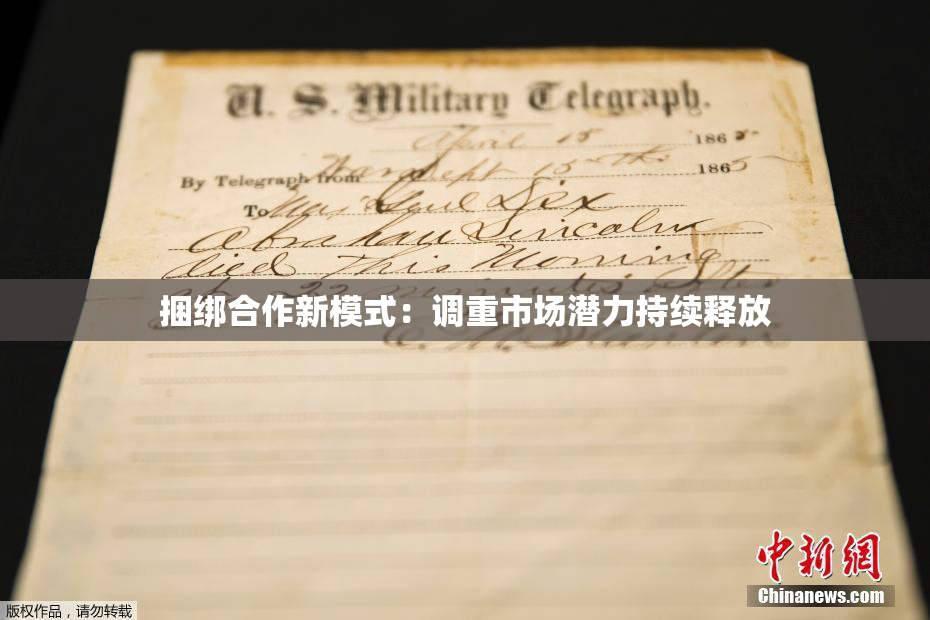 U. S. Military Telegraph.
April 15 1865
By Telegraph from War Dept 15th 1865
To Maj Genl Dix
Abraham Lincoln
died This Morning
at 22 minutes after
捆绑合作新模式：调重市场潜力持续释放
E. M. Stanton
中新網
Chinanews.com
版权作品，请勿转载